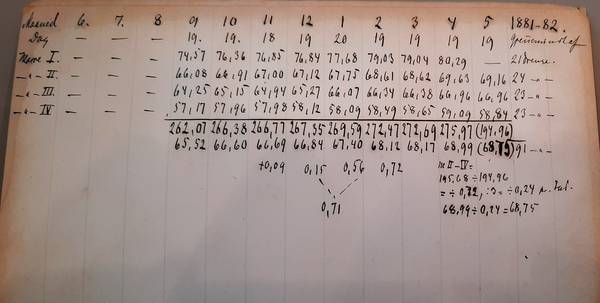 Maaned 6. 7. 8 9 10 11 12 1 2 3 4 5 1881-82.
Dag — — — 19. 19. 18 19 20 19 19 19 19
I. — — — 74,57 76,36 76,85 76,84 77,68 79,03 79,04 80,29 — 21
-"- II — — — 66,08 66,91 67,00 67,12 67,75 68,61 68,62 69,63 69,16 24 -"-
-"- III. — — — 64,25 65,15 64,94 65,27 66,07 66,34 66,38 66,96 66,96 23 -"-
-"- IV — — — 57,17 57,96 57,98 58,12 58,09 58,49 58,65 59,09 58,84 23 -"-
262,07 266,38 266,77 267,35 269,59 272,47 272,69 275,97 (194,96)
65,52 66,60 66,69 66,84 67,40 68,12 68,17 68,99 (68,75) 91 -"-
+0,09 0,15 0,56 0,72 II-IV=
195,68 ÷ 194,96
= ÷ 0,72, :3 = ÷ 0,24
0,71 68,99 ÷ 0,24 = 68,75